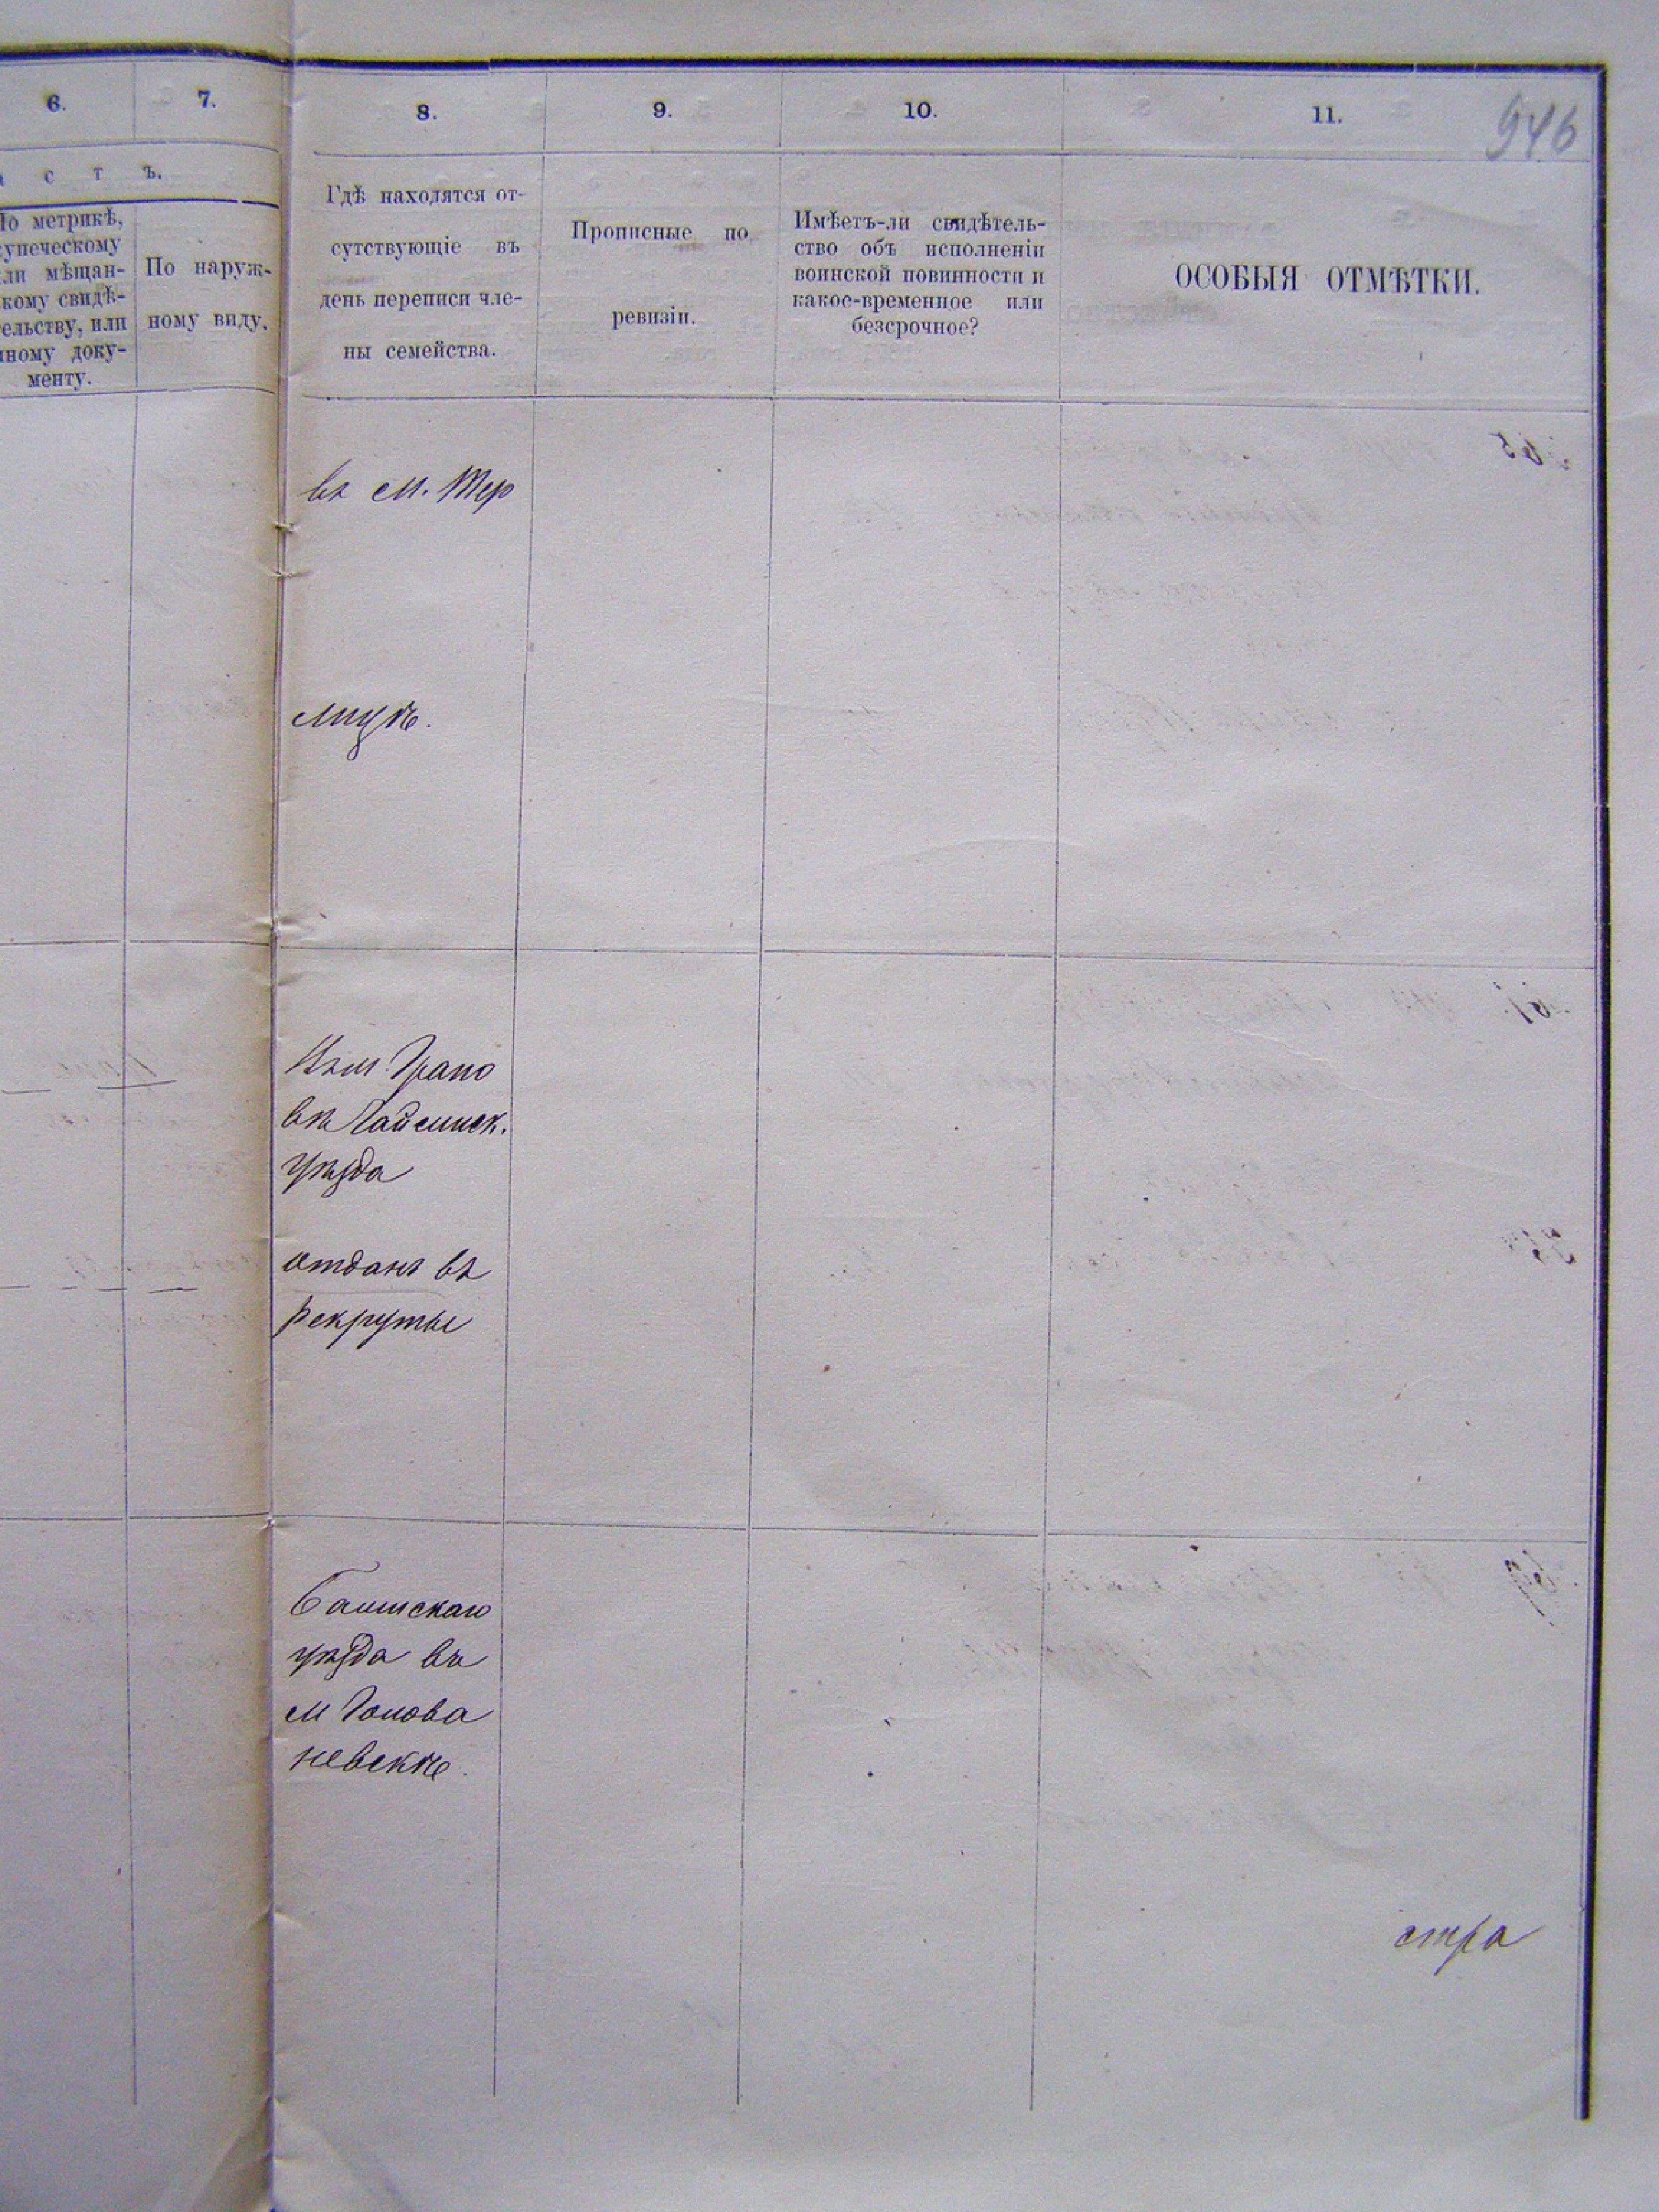 6.
7.
8.
9.
10.
11.
946
с т ъ.
По метрикѣ,
купеческому
или мѣщан-
скому свидѣ-
тельству, или
иному доку-
менту.
По наруж-
ному виду.
Гдѣ находятся от-
сутствующіе въ
день переписи чле-
ны семейства.
Прописные по
ревизіи.
Имѣетъ-ли свидѣтель-
ство объ исполненіи
воинской повинности и
какое-временное или
безсрочное?
ОСОБЫЯ ОТМѢТКИ.
въ м. Тер
лицѣ.
въ Гайсинск.
уѣзда
отданъ въ
рекруты
Балтскаго
уѣзда въ
м Голова
невскѣ.
стра